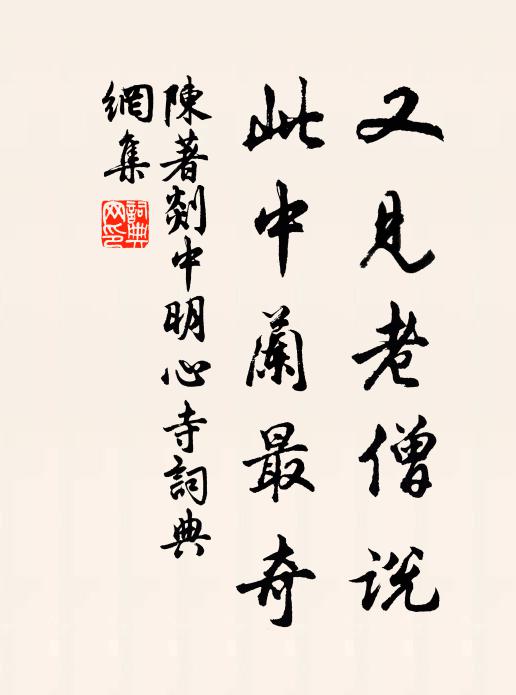 又見老僧説
此中蘭最奇
陳著剡中明心寺詞典
網集
詞典
網印